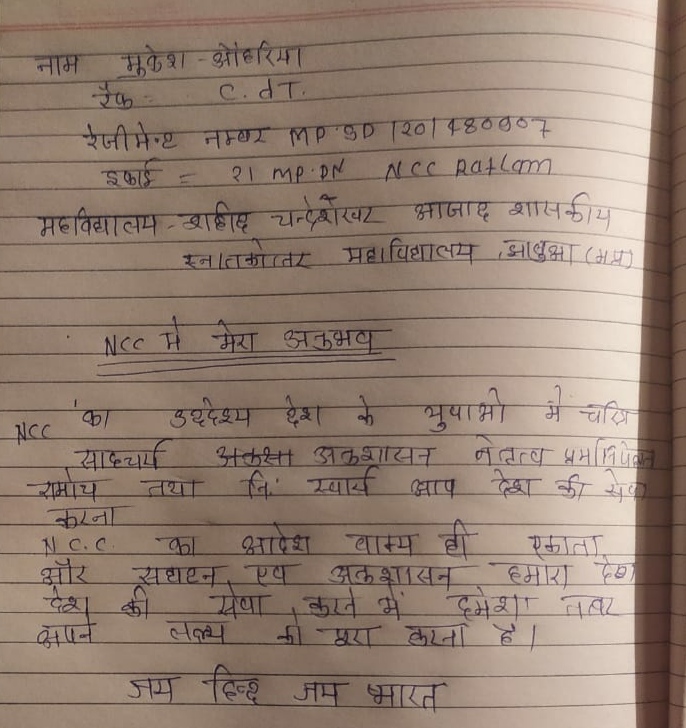 नाम मुकेश - ओहरिया
रैंक - C. dT.
रेजीमेन्ट नम्बर MP SD 1201480907
इकाई = 21 MP.BN NCC Ratlam
महाविद्यालय - शहीद चन्द्रेशेखर आजाद शासकीय
स्नातकोत्तर महाविद्यालय झाबुआ (मप्र)
NCC मे मेरा अनुभव
NCC का उद्देश्य देश के युवाओ मे चरित्र
साहचर्य अनुशासन नेतृत्व
तथा नि: स्वार्थ आप देश की सेवा
करना
N.C.C. का आदेश वाक्य ही एकाता
और संघटन एव अनुशासन हमारा देश
देश की सेवा करने में हमेशा तत्पर
अपने लक्ष्य को पूरा करना है।
जय हिन्द जय भारत